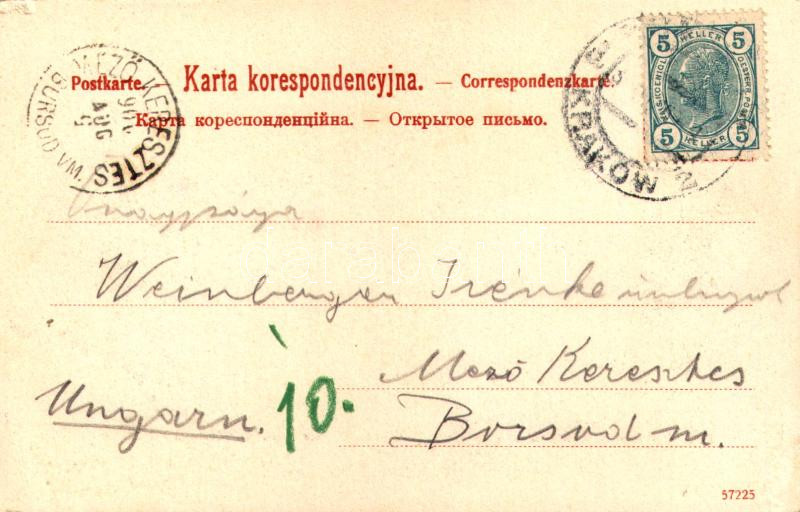 Postkarte. Karta korespondencyjna. — Correspondenzkarte.
Карта кореспонденційна. — Открытое письмо.
MEZŐ-KERESZTES
AUG
BORSOD VM.
KRAKÓW
5 HELLER 5
KAIS. KOENIGL. OESTERR. POST
5 HELLER 5
Weinberger Irénke
Mező Keresztes
Ungarn. 10.
Borsod m.
57225